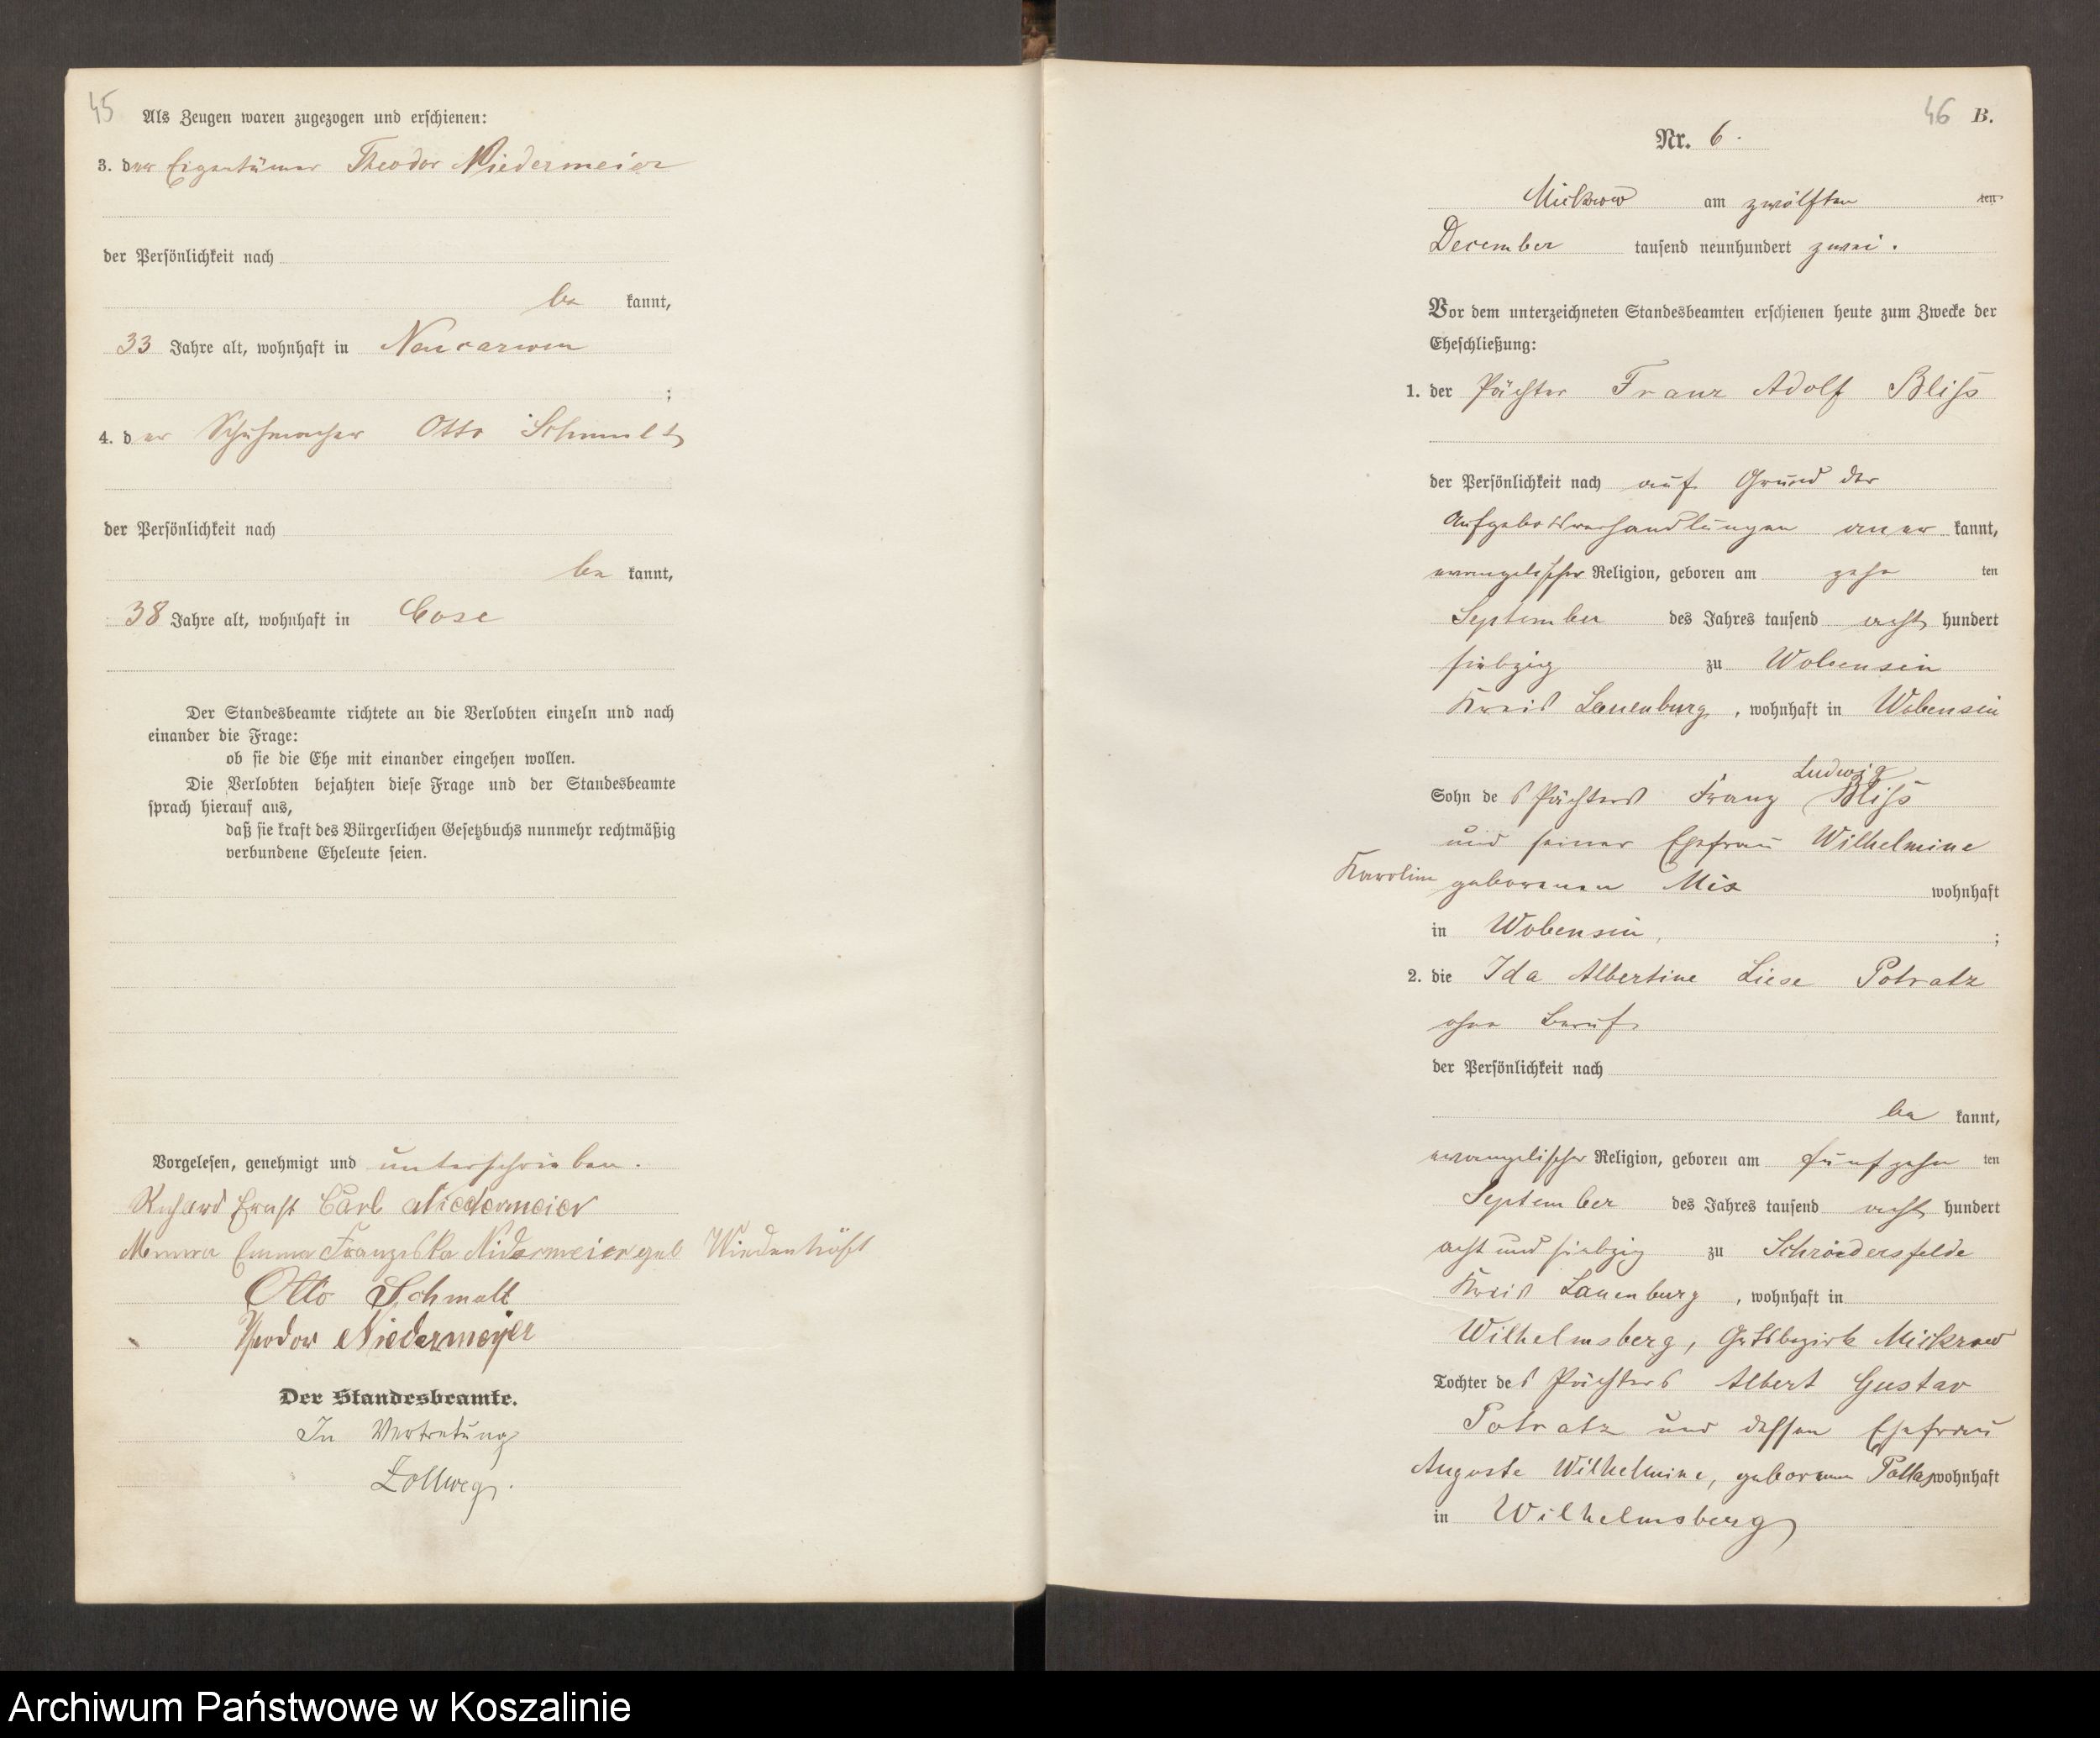 45
Als Zeugen waren zugezogen und erschienen:
3. der Eigentümer Theodor Niedermeier
der Persönlichkeit nach
be kannt,
33 Jahre alt, wohnhaft in Neucarwen
;
4. der Schuhmacher Otto Schmalt
der Persönlichkeit nach
be kannt,
38 Jahre alt, wohnhaft in Cose
Der Standesbeamte richtete an die Verlobten einzeln und nach
einander die Frage:
ob sie die Ehe mit einander eingehen wollen.
Die Verlobten bejahten diese Frage und der Standesbeamte
sprach hierauf aus,
daß sie kraft des Bürgerlichen Gesetzbuchs nunmehr rechtmäßig
verbundene Eheleute seien.
Vorgelesen, genehmigt und unterschrieben.
Richard Ernst Carl Niedermeier
Emma Franziska Nidermeier geb Wiedenhöft
Otto Schmalt
Theodor Niedermeyer
Der Standesbeamte.
In Vertretung
Zollweg.
46 B.
Nr. 6.
Mickrow am zwölften ten
December tausend neunhundert zwei.
Vor dem unterzeichneten Standesbeamten erschienen heute zum Zwecke der
Eheschließung:
1. der Pächter Franz Adolf Bliß
der Persönlichkeit nach auf Grund der
Aufgebotsverhandlungen aner kannt,
evangelischer Religion, geboren am zehn ten
September des Jahres tausend acht hundert
siebzig zu Wobensin
Kreis Lauenburg, wohnhaft in Wobensin
Ludwig
Sohn des Pächters Franz Bliß
und seiner Ehefrau Wilhelmine
Karoline geborenen Mix wohnhaft
in Wobensin, ;
2. die Ida Albertine Liese Potratz
ohne Beruf
der Persönlichkeit nach
be kannt,
evangelischer Religion, geboren am fünfzehn ten
September des Jahres tausend acht hundert
acht und siebzig zu Schrödersfelde
Kreis Lauenburg, wohnhaft in
Wilhelmsberg, Gutsbezirk Mickrow
Tochter des Pächters Albert Gustav
Potratz und dessen Ehefrau
Auguste Wilhelmine, geborenen wohnhaft
in Wilhelmsberg
Archiwum Państwowe w Koszalinie